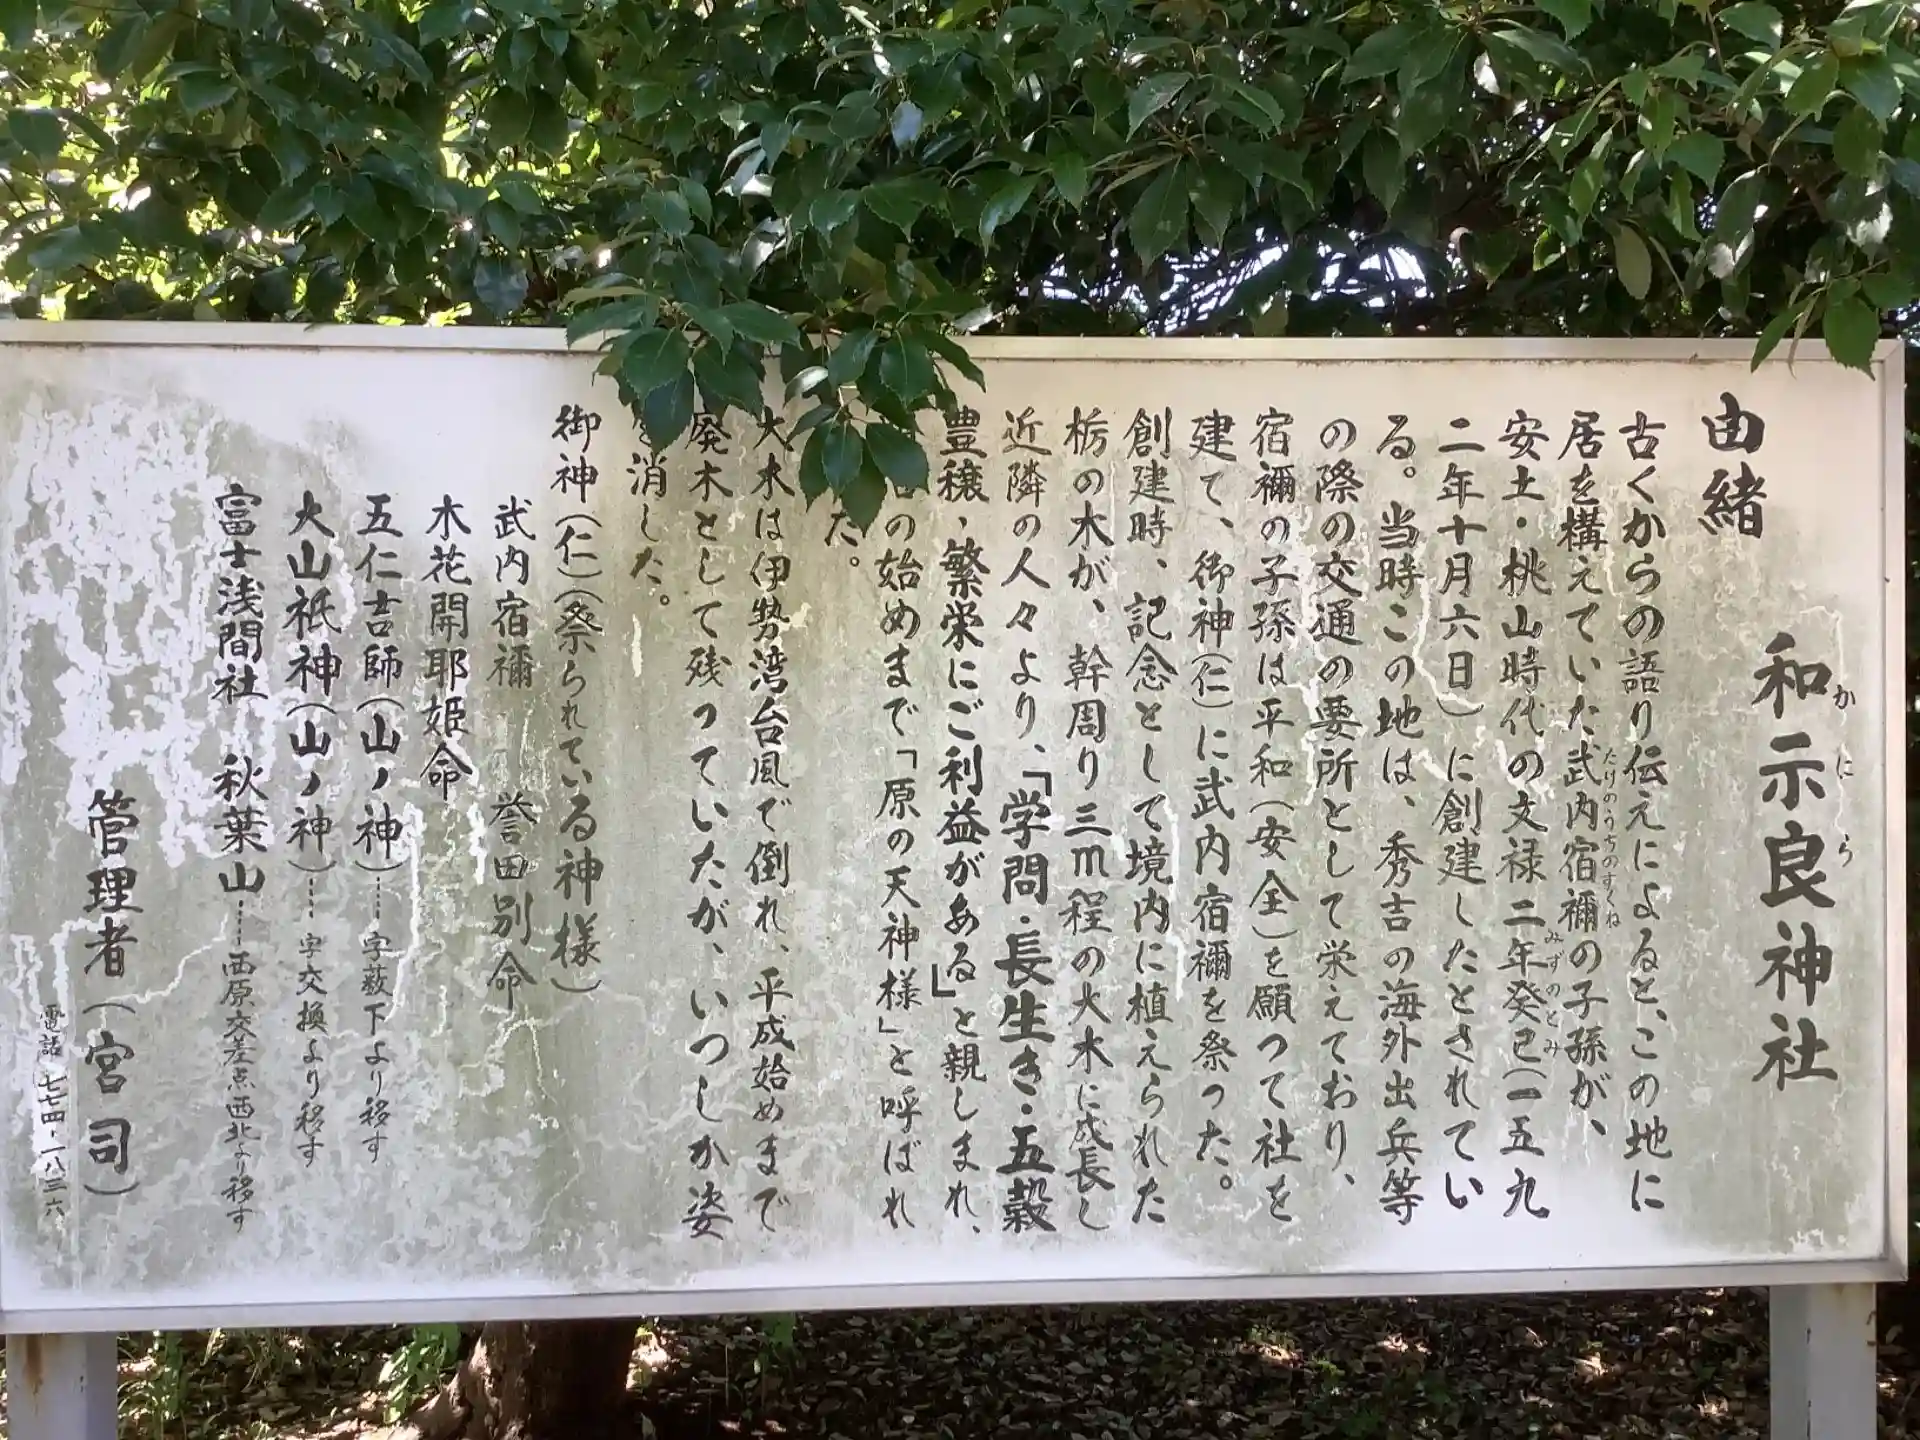 由緒
和示良神社
かにら
古くからの語り伝えによると、この地に
居を構えていた武内宿禰の子孫が、
たけのうちのすくね
安土・桃山時代の文禄二年癸巳(一五九
みずのとみ
二年十月六日)に創建したとされてい
る。当時この地は、秀吉の海外出兵等
の際の交通の要所として栄えており、
宿禰の子孫は平和(安全)を願って社を
建て、御神(仁)に武内宿禰を祭った。
創建時、記念として境内に植えられた
栃の木が、幹周り三m程の大木に成長し
近隣の人々より、「学問・長生き・五穀
豊穣・繁栄にご利益がある」と親しまれ、
の始めまで「原の天神様」と呼ばれ
た。
大木は伊勢湾台風で倒れ、平成始めまで
廃木として残っていたが、いつしか姿
を消した。
御神(仁)(祭られている神様)
武内宿禰 誉田別命
木花開耶姫命
五仁吉師(山ノ神)……字薮下より移す
大山祇神(山ノ神)……字交換より移す
富士浅間社 秋葉山……西原交差点西北より移す
管理者(宮司)
電話 七七四-一八三六